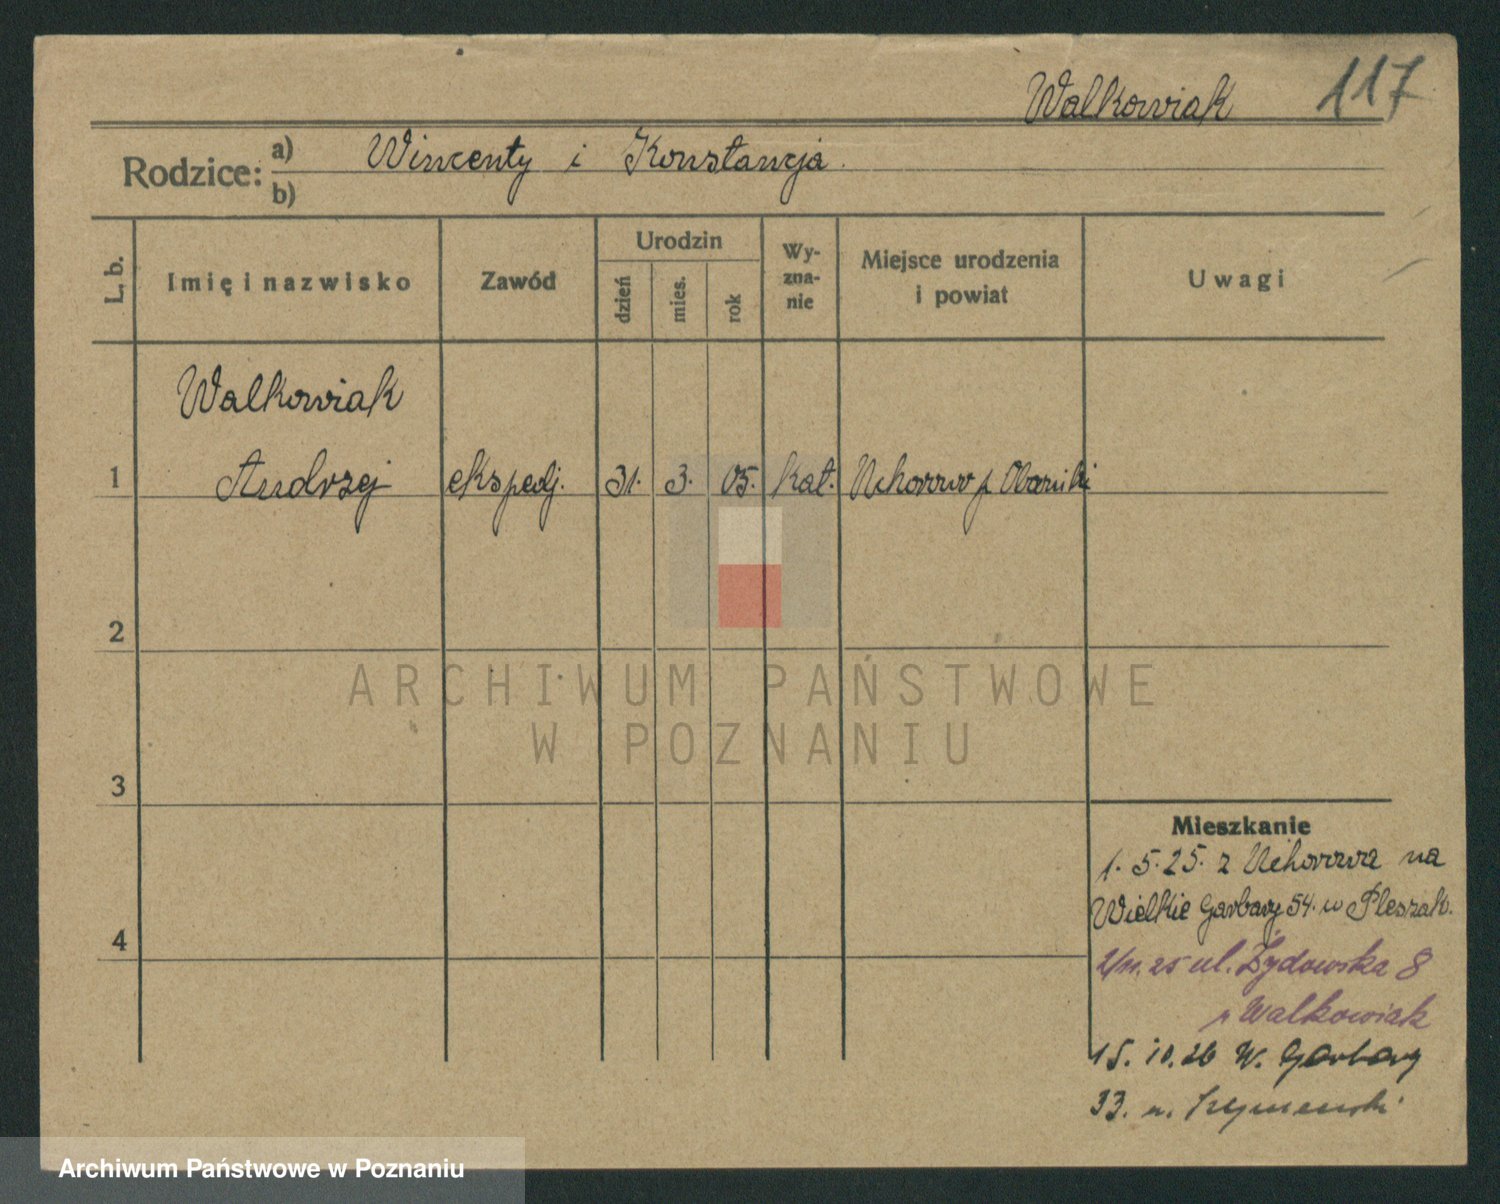 Walkowiak 117
Rodzice: a) Wincenty i Konstancja.
b)
L. b. Imię i nazwisko Zawód Urodzin dzień mies. rok Wyzna-nie Miejsce urodzenia i powiat Uwagi
Walkowiak
1 Andrzej ekspedj. 31. 3. 05. kat. Uchorowo p Oborniki
2
ARCHIWUM PAŃSTWOWE
W POZNANIU
3
Mieszkanie
1. 5. 25. z Uchorowa na
Wielkie Garbary 54. u Pleszak.
4
2/11. 25 ul. Żydowska 8
p Walkowiak
15. 10. 26 W. Garbary
33. u.
Archiwum Państwowe w Poznaniu